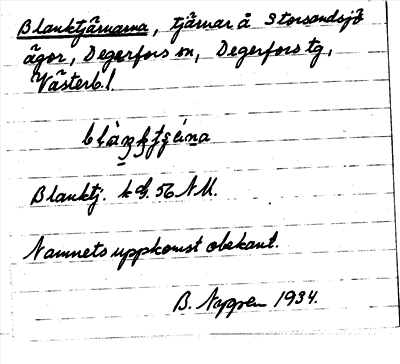 Blanktjärnarna, tjärnar å Storsandsjö
ägor, Degerfors sn, Degerfors tg,
Västerb. l.
Blanktj. k bl. 56 NM.
Namnets uppkomst obekant.
B. Nygren 1934.